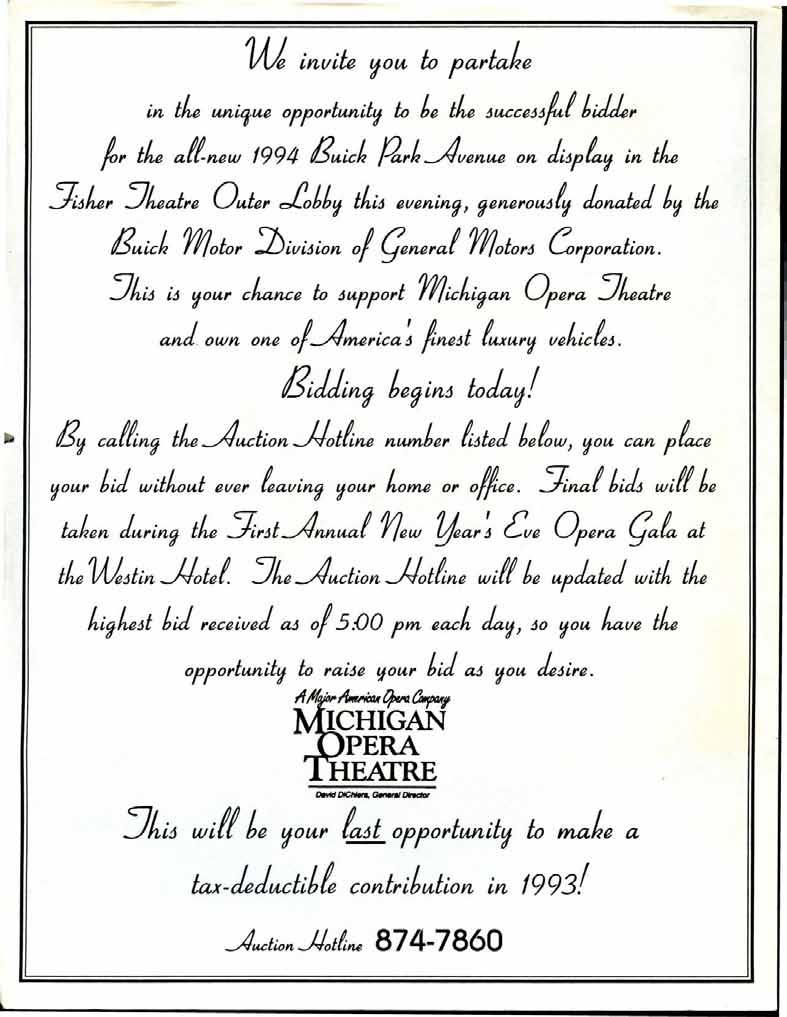 We invite you to partake
in the unique opportunity to be the successful bidder
for the all-new 1994 Buick Park Avenue on display in the
Fisher Theatre Outer Lobby this evening, generously donated by the
Buick Motor Division of General Motors Corporation.
This is your chance to support Michigan Opera Theatre
and own one of America's finest luxury vehicles.
Bidding begins today!
By calling the Auction Hotline number listed below, you can place
your bid without ever leaving your home or office. Final bids will be
taken during the First Annual New Year's Eve Opera Gala at
the Westin Hotel. The Auction Hotline will be updated with the
highest bid received as of 5:00 pm each day, so you have the
opportunity to raise your bid as you desire.
A Major American Opera Company
MICHIGAN
OPERA
THEATRE
David DiChiera, General Director
This will be your last opportunity to make a
tax-deductible contribution in 1993!
Auction Hotline 874-7860